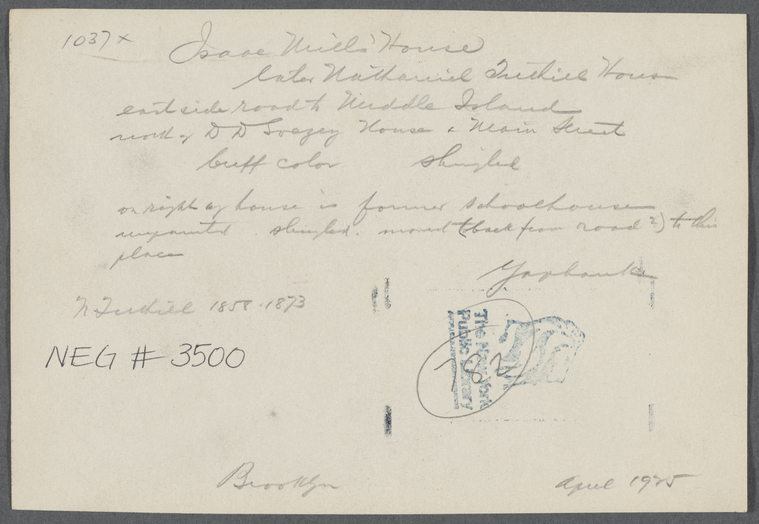 1037x
Isaac Mills House
later Nathaniel Tuthill House
east side road to Middle Island
north of D D House & Main Street
buff color shingled
on right of house is former schoolhouse
unpainted. shingled. moved (back from road ?) to this
place
Yaphank
N Tuthill 1858-1873
NEG # 3500
The New York
Public Library
Brooklyn
April 1925